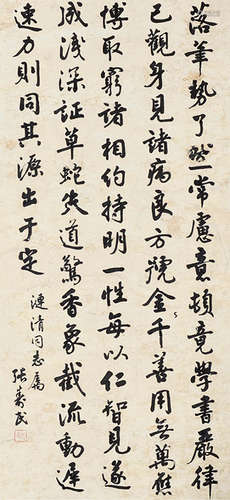 落筆勢了然常慮意頓竟學書嚴律
已觀身見諸病良方號金千善用無萬應
博取窮諸相約持明一性每以仁智見遂
成淺深証草蛇失道驚香象截流動遲
速力則同其源出于定
漣清同志屬
張壽民